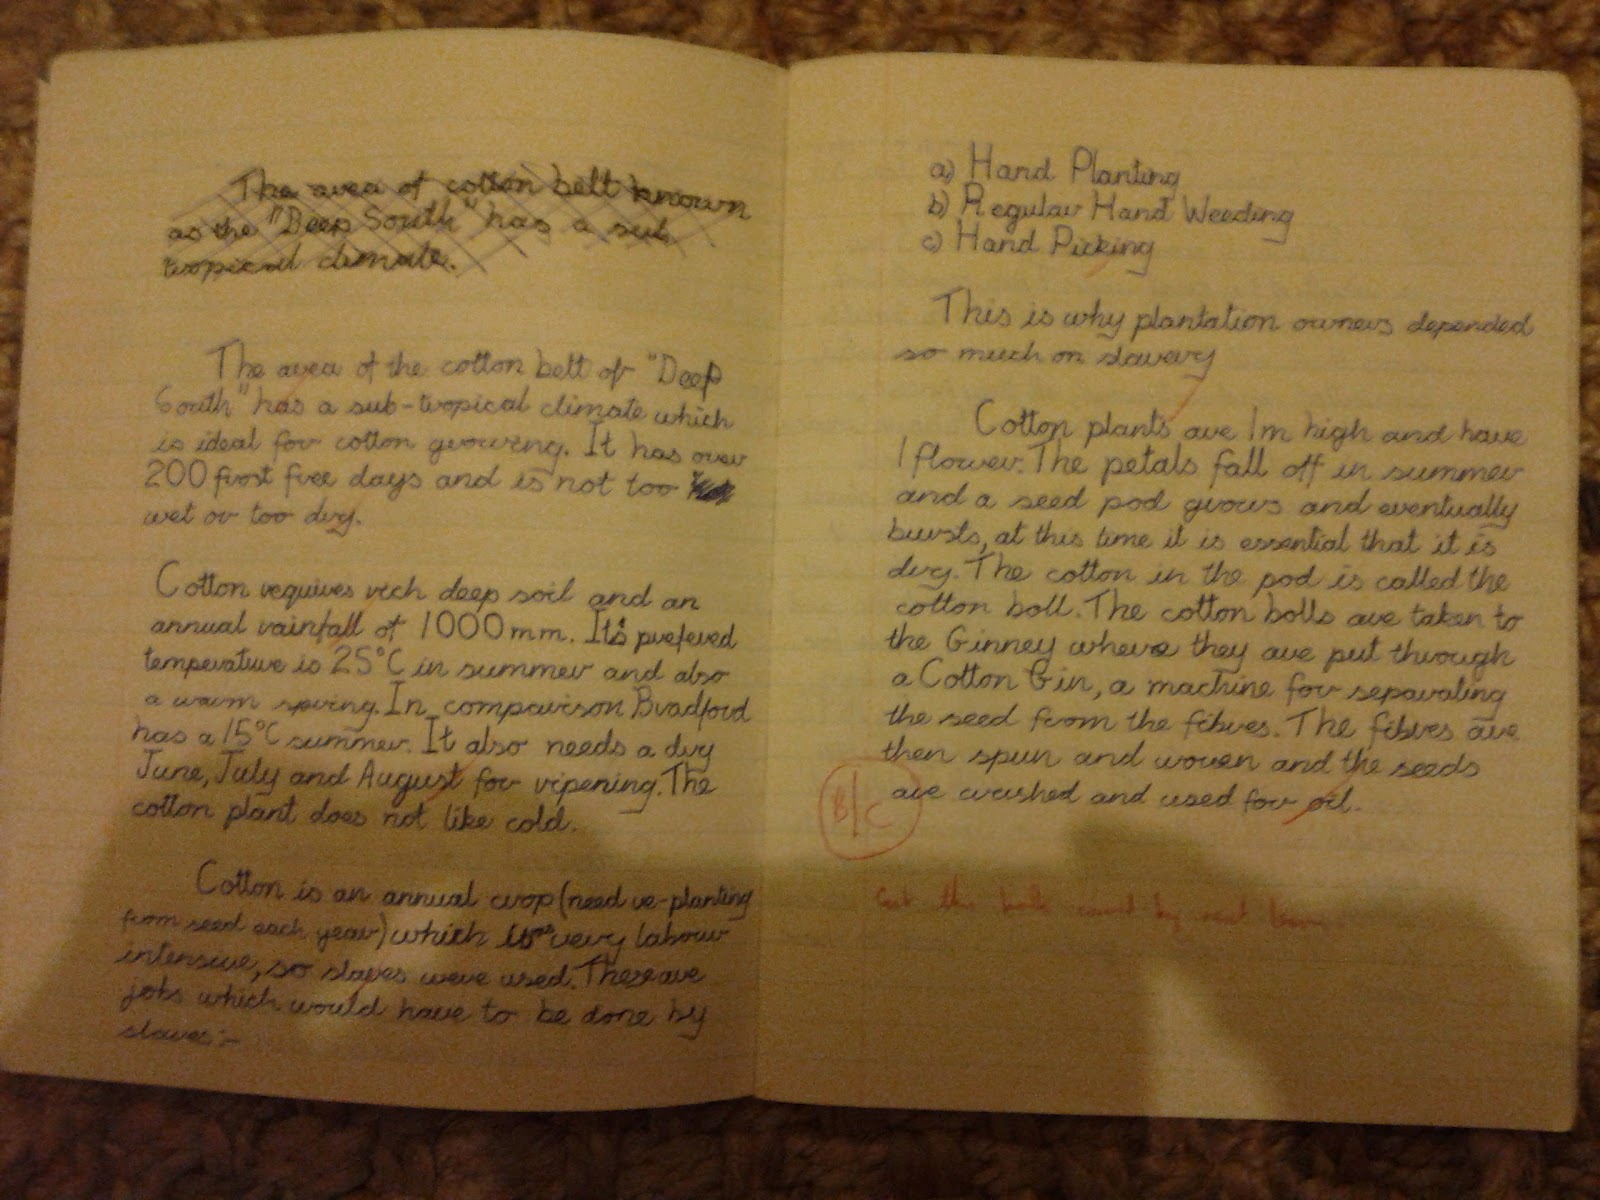 The area of cotton belt known
as the "Deep South" has a sub
tropical climate.
The area of the cotton belt of "Deep
South" has a sub-tropical climate which
is ideal for cotton growing. It has over
200 frost free days and is not too
wet or too dry.
Cotton requires rich deep soil and an
annual rainfall of 1000mm. It's prefered
temperature is 25°C in summer and also
a warm spring. In compairison Bradford
has a 15°C summer. It also needs a dry
June, July and August for ripening. The
cotton plant does not like cold.
Cotton is an annual crop (need re-planting
from seed each year) which is very labour
intensive, so slaves were used. These are
jobs which would have to be done by
slaves:-
a) Hand Planting
b) Regular Hand Weeding
c) Hand Picking
This is why plantation owners depended
so much on slavery
Cotton plants are 1m high and have
1 flower. The petals fall off in summer
and a seed pod grows and eventually
bursts, at this time it is essential that it is
dry. The cotton in the pod is called the
cotton boll. The cotton bolls are taken to
the Ginney where they are put through
a Cotton Gin, a machine for separating
the seed from the fibres. The fibres are
then spun and woven and the seeds
are crushed and used for oil.
B/C
this by next